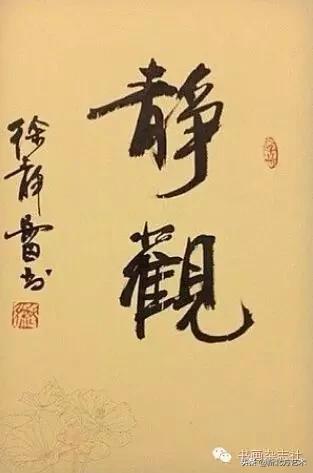 靜觀
徐静蕾书
书画杂志社